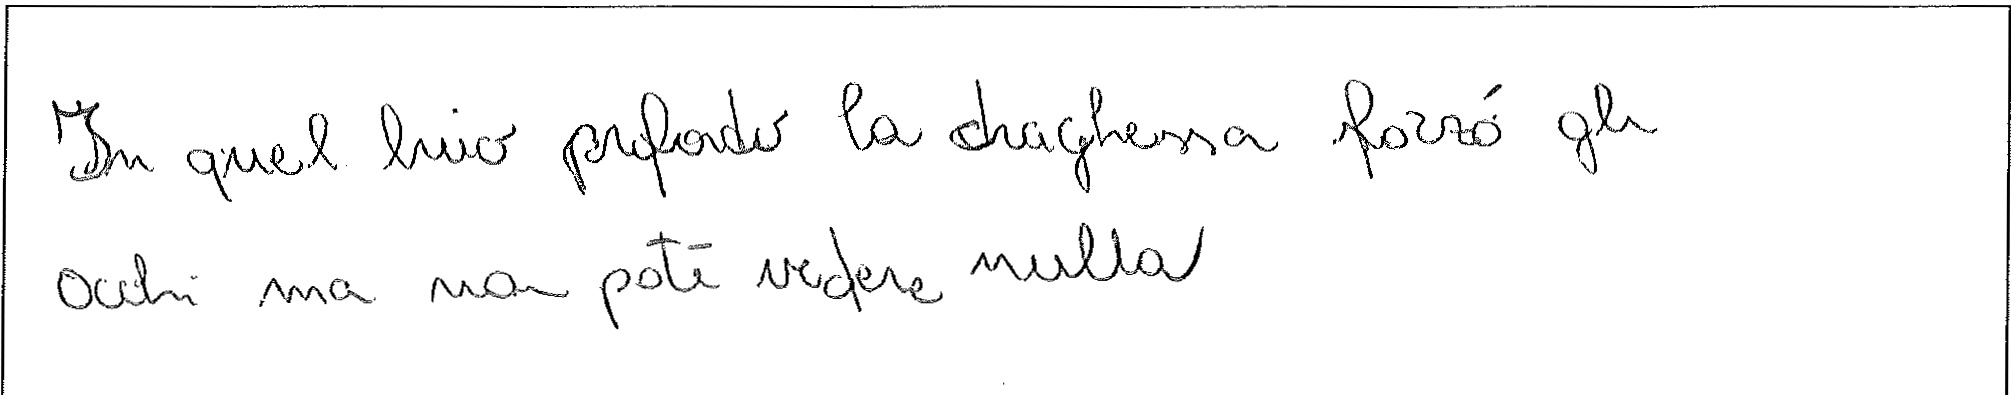 In quel buio profondo la draghessa forzó gli
occhi ma non potē vedere nulla